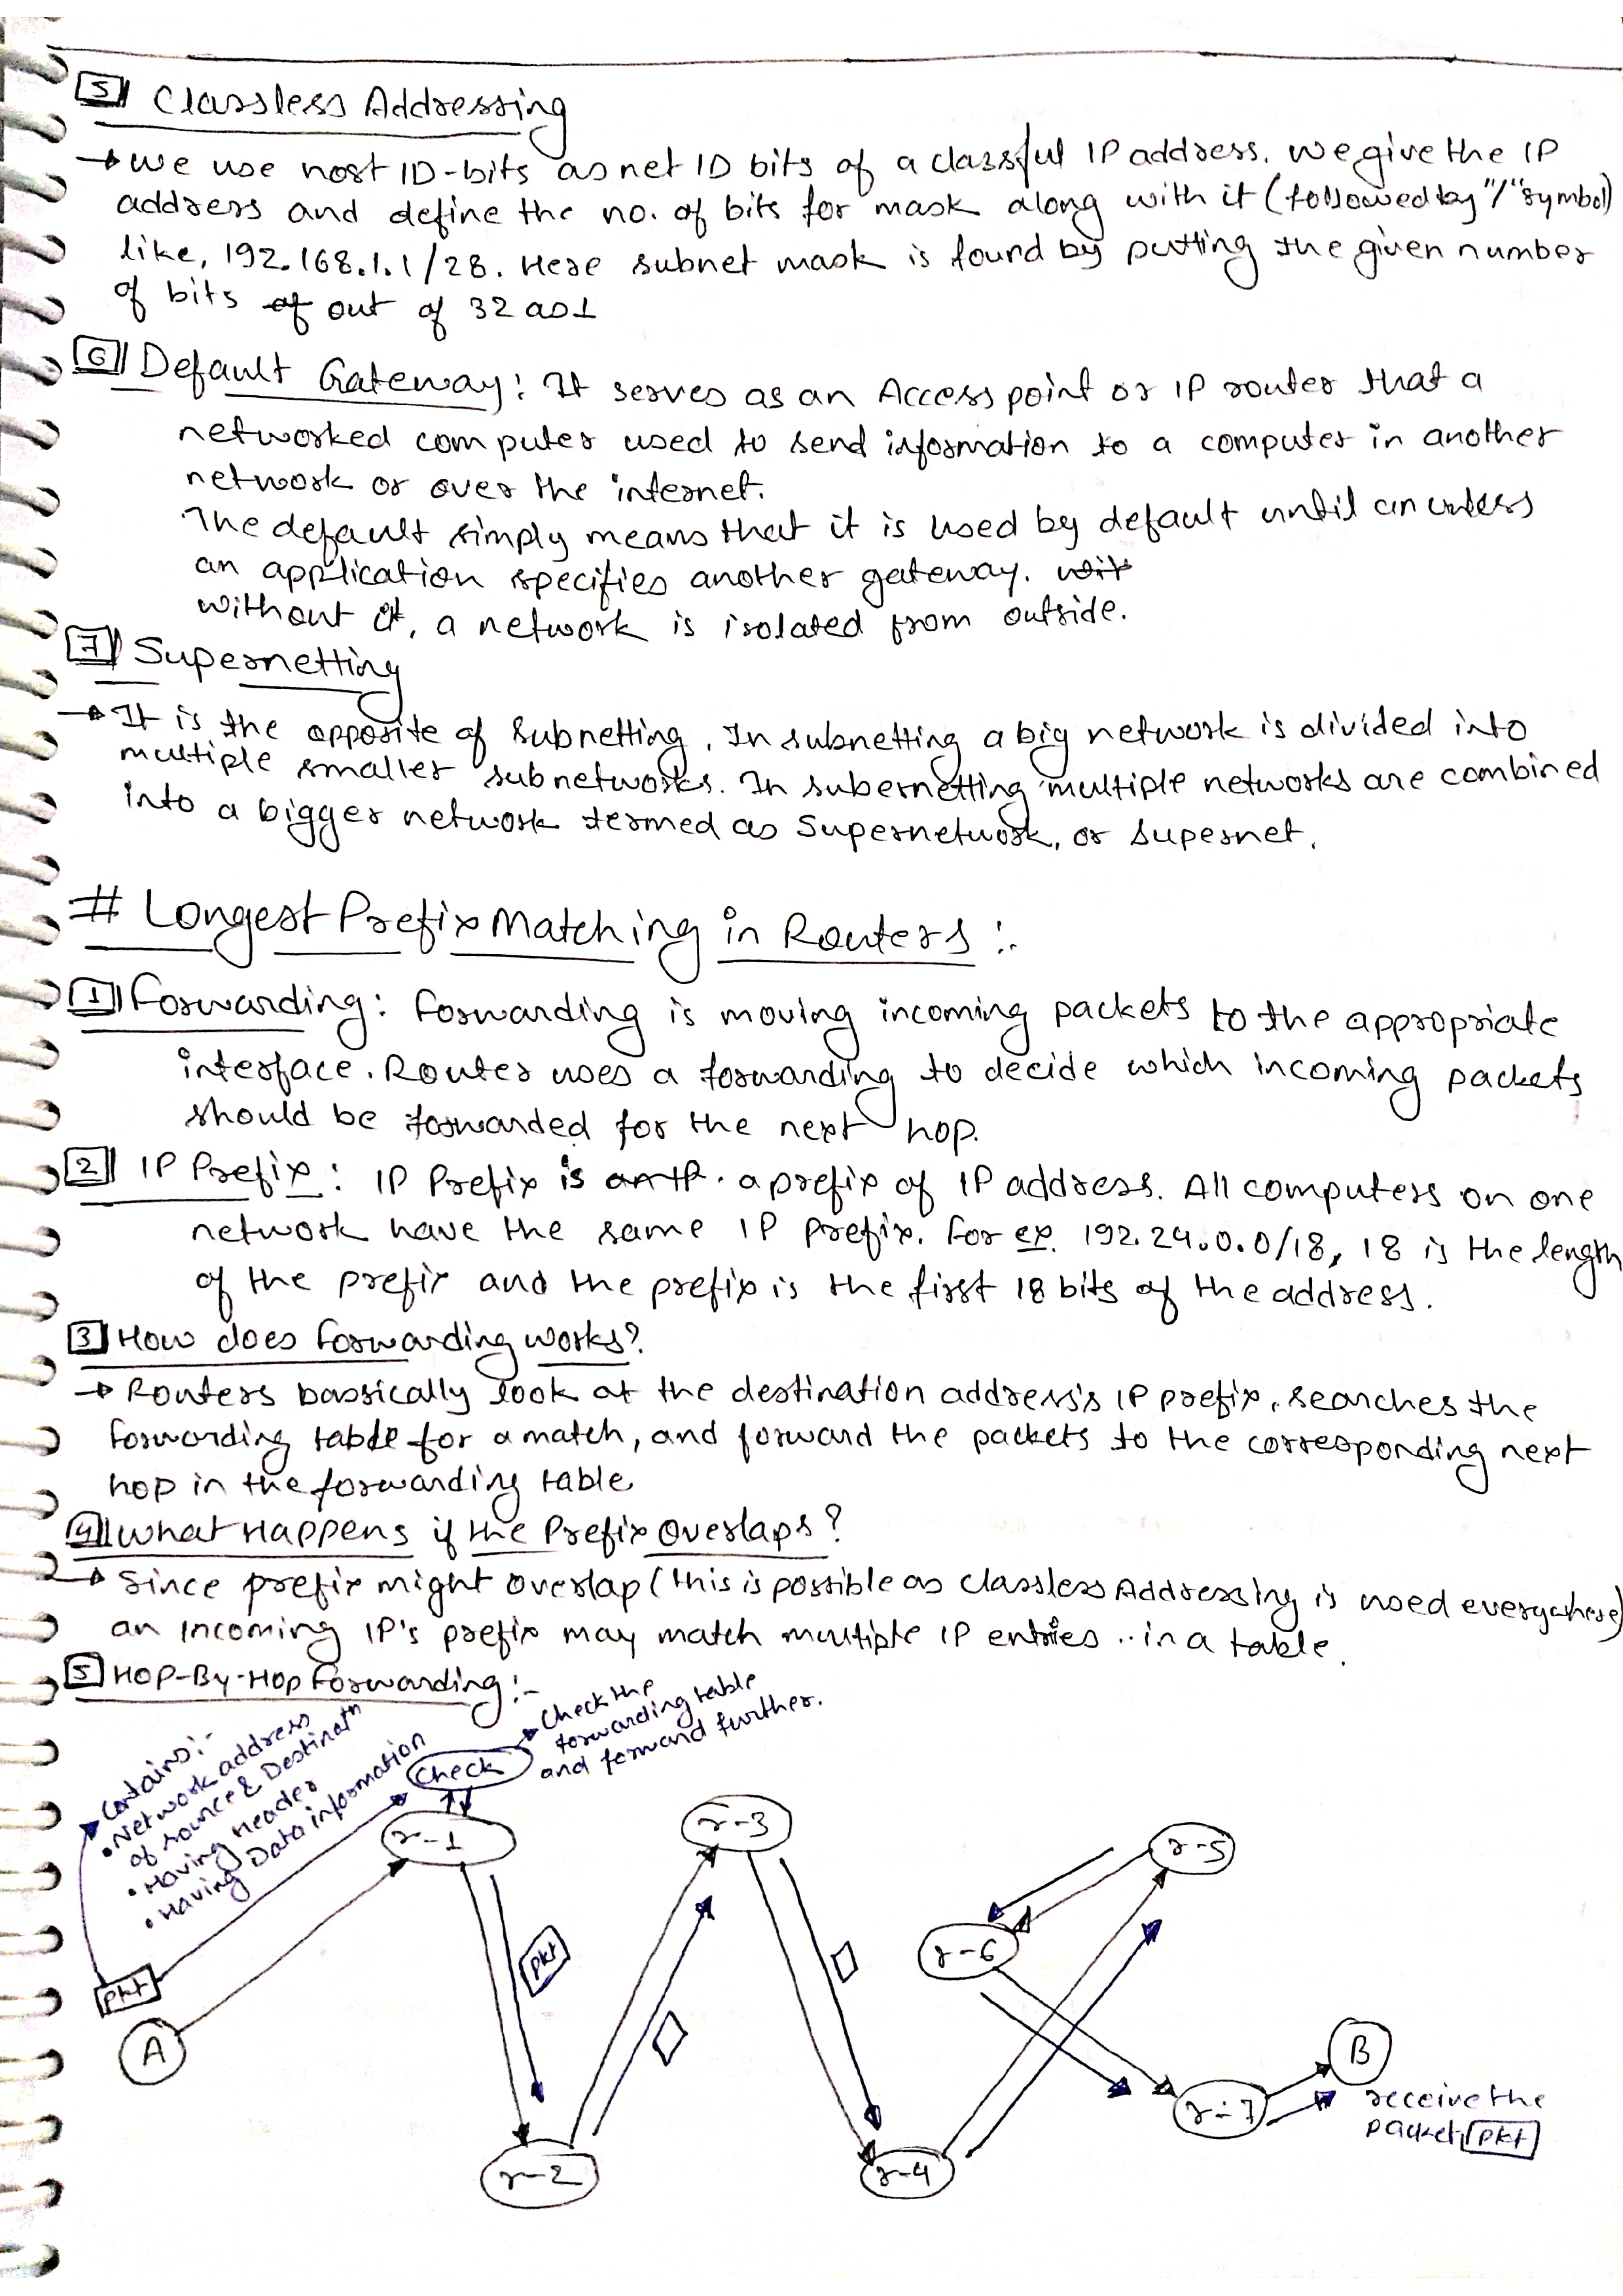 5 Classless Addressing
→ We use host ID-bits as net ID bits of a classful IP address. We give the IP
address and define the no. of bits for mask along with it (followed by "/" symbol)
like, 192.168.1.1/28. Here subnet mask is found by putting the given number
of bits of out of 32 as 1
6 Default Gateway: It serves as an Access point or IP router that a
networked computer used to send information to a computer in another
network or over the internet.
The default simply means that it is used by default until an unless
an application specifies another gateway. wit
without it, a network is isolated from outside.
7 Supernetting
→ It is the opposite of Subnetting. In subnetting a big network is divided into
multiple smaller subnetworks. In subernetting multiple networks are combined
into a bigger network termed as Supernetwork, or Supernet.
# Longest Prefix Matching in Routers :-
1 Forwarding: Forwarding is moving incoming packets to the appropriate
interface. Router uses a forwarding to decide which incoming packets
should be forwarded for the next hop.
2 IP Prefix: IP Prefix is an IP. a prefix of IP address. All computers on one
network have the same IP prefix. For ex. 192.24.0.0/18, 18 is the length
of the prefix and the prefix is the first 18 bits of the address.
3 How does forwarding works?
→ Routers bassically look at the destination address's IP prefix, searches the
forwarding table for a match, and forward the packets to the corresponding next
hop in the forwarding table.
4 What Happens if the Prefix Overlaps?
→ Since prefix might overlap (this is possible as Classless Addressing is used everywhere)
an Incoming IP's prefix may match multiple IP entries .. in a table.
5 HOP-By-Hop Forwarding :-
Contains:-
• Network address
of source & Destinatn
• Having Header
• Having Data information
Check
→ Check the
forwarding table
and forward further.
r-1
r-3
r-5
r-6
pkt
pkt
A
B
r-7
receive the
packet pkt
r-2
r-4